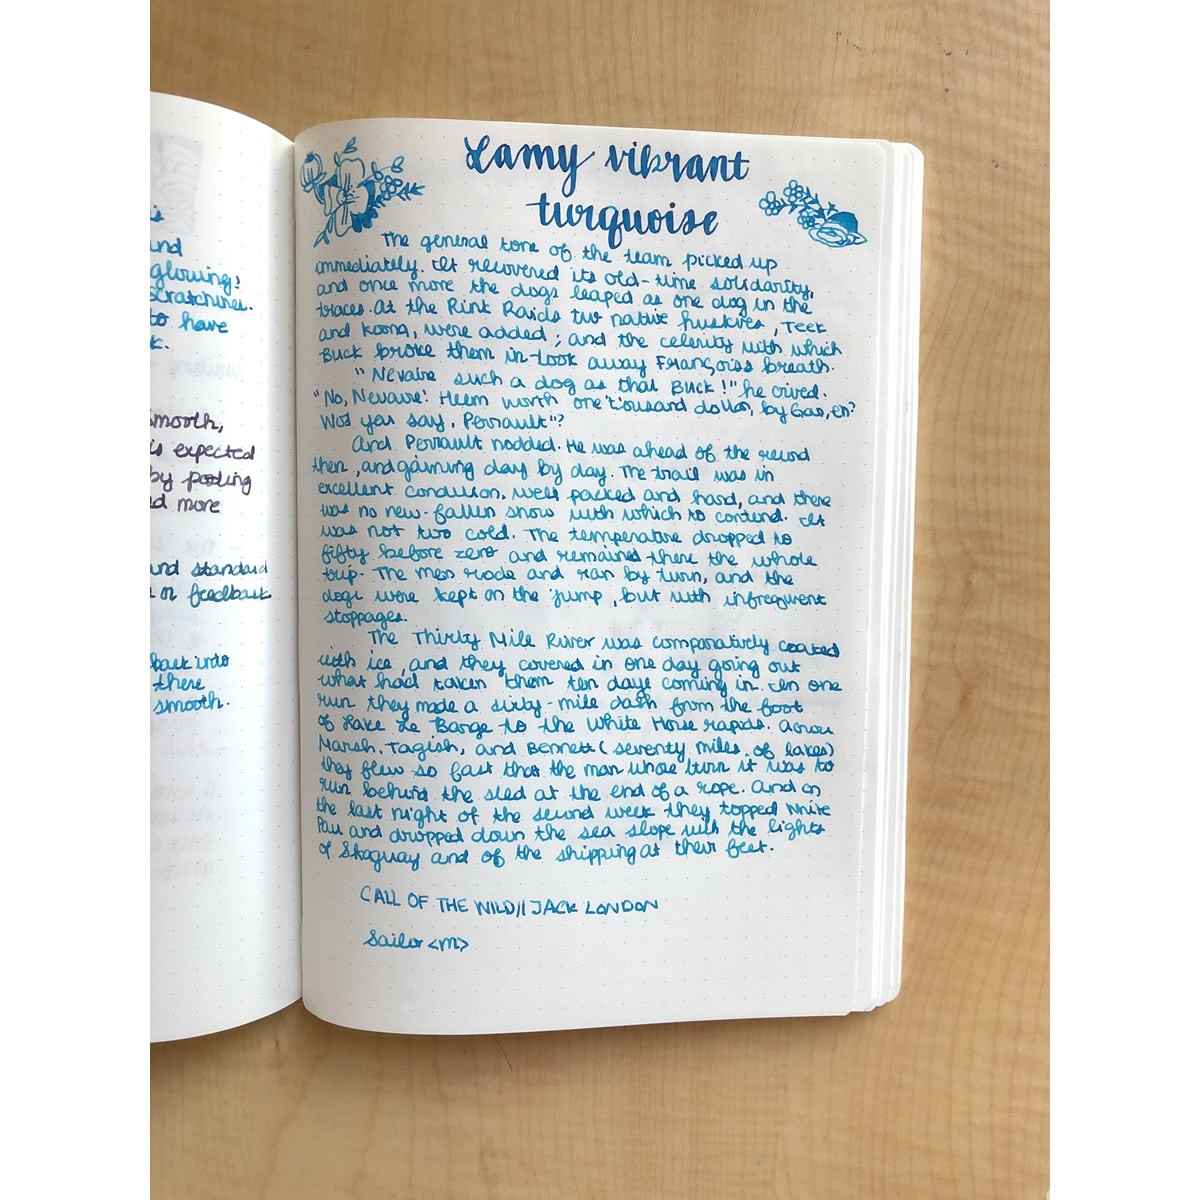 is
and
glowing;
scratchiness.
to have
k.
smooth,
is expected
by pooling
d more
and standard
n or feedback
back into
there
smooth.
Lamy vibrant
turquoise
The general tone of the team picked up
immediately. It recovered its old-time solidarity,
and once more the dogs leaped as one dog in the
traces. At the Rink Raids two native huskies, Teek
and Koona, were added; and the celerity with which
Buck broke them in took away François's breath.
"Nevaire such a dog as that Buck!" he cried.
"No, Nevaire! Heem worth one t'ousand dollar, by Gar, eh?
Wot you say, Perrault"?
And Perrault nodded. He was ahead of the record
then, and gaining day by day. The trail was in
excellent condition, well packed and hard, and there
was no new-fallen snow with which to contend. It
was not too cold. The temperature dropped to
fifty before zero and remained there the whole
trip. The men rode and ran by turn, and the
dogs were kept on the jump, but with infrequent
stoppages.
The Thirty Mile River was comparatively coated
with ice, and they covered in one day going out
what had taken them ten days coming in. In one
run they made a sixty-mile dash from the foot
of Lake Le Barge to the White Horse rapids. Across
Marsh, Tagish, and Bennett (seventy miles of lakes)
they flew so fast that the man whose turn it was to
run behind the sled at the end of a rope. And on
the last night of the second week they topped White
Pass and dropped down the sea slope with the lights
of Skaguay and of the shipping at their feet.
CALL OF THE WILD // JACK LONDON
Sailor <M>